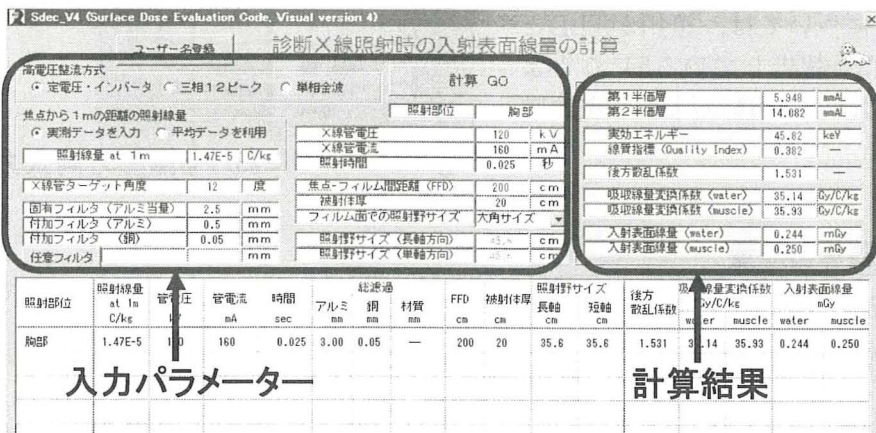 Sdec_V4 (Surface Dose Evaluation Code, Visual version 4)
ユーザー名登録
診断X線照射時の入射表面線量の計算
高電圧整流方式
定電圧・インバータ 三相12ピーク 単相全波
焦点から1mの距離の照射線量
実測データを入力 平均データを利用
照射線量 at 1m 1.47E-5 C/kg
X線管ターゲット角度 12 度
固有フィルタ（アルミ当量） 2.5 mm
付加フィルタ（アルミ） 0.5 mm
付加フィルタ（銅） 0.05 mm
任意フィルタ mm
計算 GO
照射部位 胸部
X線管電圧 120 kV
X線管電流 160 mA
照射時間 0.025 秒
焦点-フィルム間距離（FFD） 200 cm
被射体厚 20 cm
フィルム面での照射野サイズ 大角サイズ
照射野サイズ（長軸方向） cm
照射野サイズ（単軸方向） cm
第1半価層 5.948 mmAL
第2半価層 14.082 mmAL
実効エネルギー 45.82 keV
線質指標（Quality Index） 0.382 —
後方散乱係数 1.531 —
吸収線量変換係数（water） 35.14 Gy/C/kg
吸収線量変換係数（muscle） 35.93 Gy/C/kg
入射表面線量（water） 0.244 mGy
入射表面線量（muscle） 0.250 mGy
照射部位 照射線量 at 1m C/kg 管電圧 kV 管電流 mA 時間 sec 総濾過 アルミ mm 銅 mm 材質 mm FFD cm 被射体厚 cm 照射野サイズ 長軸 cm 短軸 cm 後方散乱係数 吸収線量変換係数 Gy/C/kg water muscle 入射表面線量 mGy water muscle
胸部 1.47E-5 160 0.025 3.00 0.05 — 200 20 35.6 35.6 1.531 35.14 35.93 0.244 0.250
入力パラメーター
計算結果